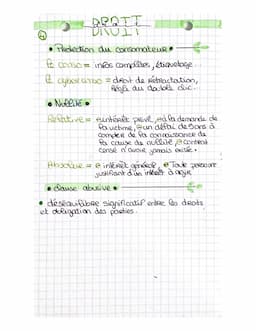 DROIT
• Protection du consomateur •
conso = infos complètes, étiquetage.
cyberconso = droit de rétractation,
Règle du double clic.
• Nullité •
Relative = intérêt privé, à la demande de
la victime, un délai de 5 ans à
compter de la connaissance de
la cause de nullité, contrat
censé n'avoir jamais existé.
Absolue = intérêt général, Toute personne
justifiant d'un intérêt à agir
• clause abusive •
• déséquilibre significatif entre les droits
et obligation des parties.